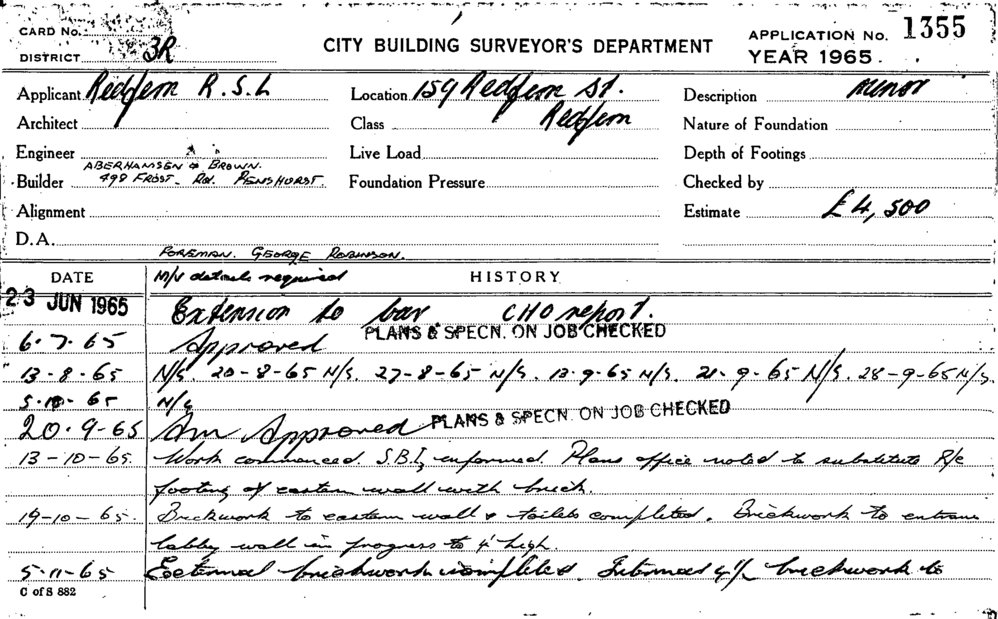 CARD No.
DISTRICT 3R
CITY BUILDING SURVEYOR'S DEPARTMENT
APPLICATION No. 1355
YEAR 1965
Applicant Redfern R.S.L
Location 159 Redfern St.
Description Minor
Architect
Class Redfern
Nature of Foundation
Engineer
Live Load
Depth of Footings
ABERHAMSEN & BROWN.
Builder 498 FROST. Rd. PENSHURST.
Foundation Pressure
Checked by
Alignment
Estimate £4,500
D.A.
FOREMAN. GEORGE ROBINSON.
DATE
M/V details required
HISTORY
23 JUN 1965 Extension to bar CHO report.
PLANS & SPECN. ON JOB CHECKED
6.7.65 Approved
13-8-65 N/S. 20-8-65 N/S. 27-8-65 N/S. 13-9-65 N/S. 21-9-65 N/S. 28-9-65 N/S.
5.10-65 N/S
20.9-65 Am Approved PLANS & SPECN. ON JOB CHECKED
13-10-65. Work commenced. S.B.I. informed. Plans office noted to substitute R/c
footing of eastern wall with brick.
19-10-65. Brickwork to eastern wall & toilets completed. Brickwork to entrance
lobby wall in progress to 4' high.
5-11-65 External brickwork completed. Internal 4½ brickwork to
C of S 882